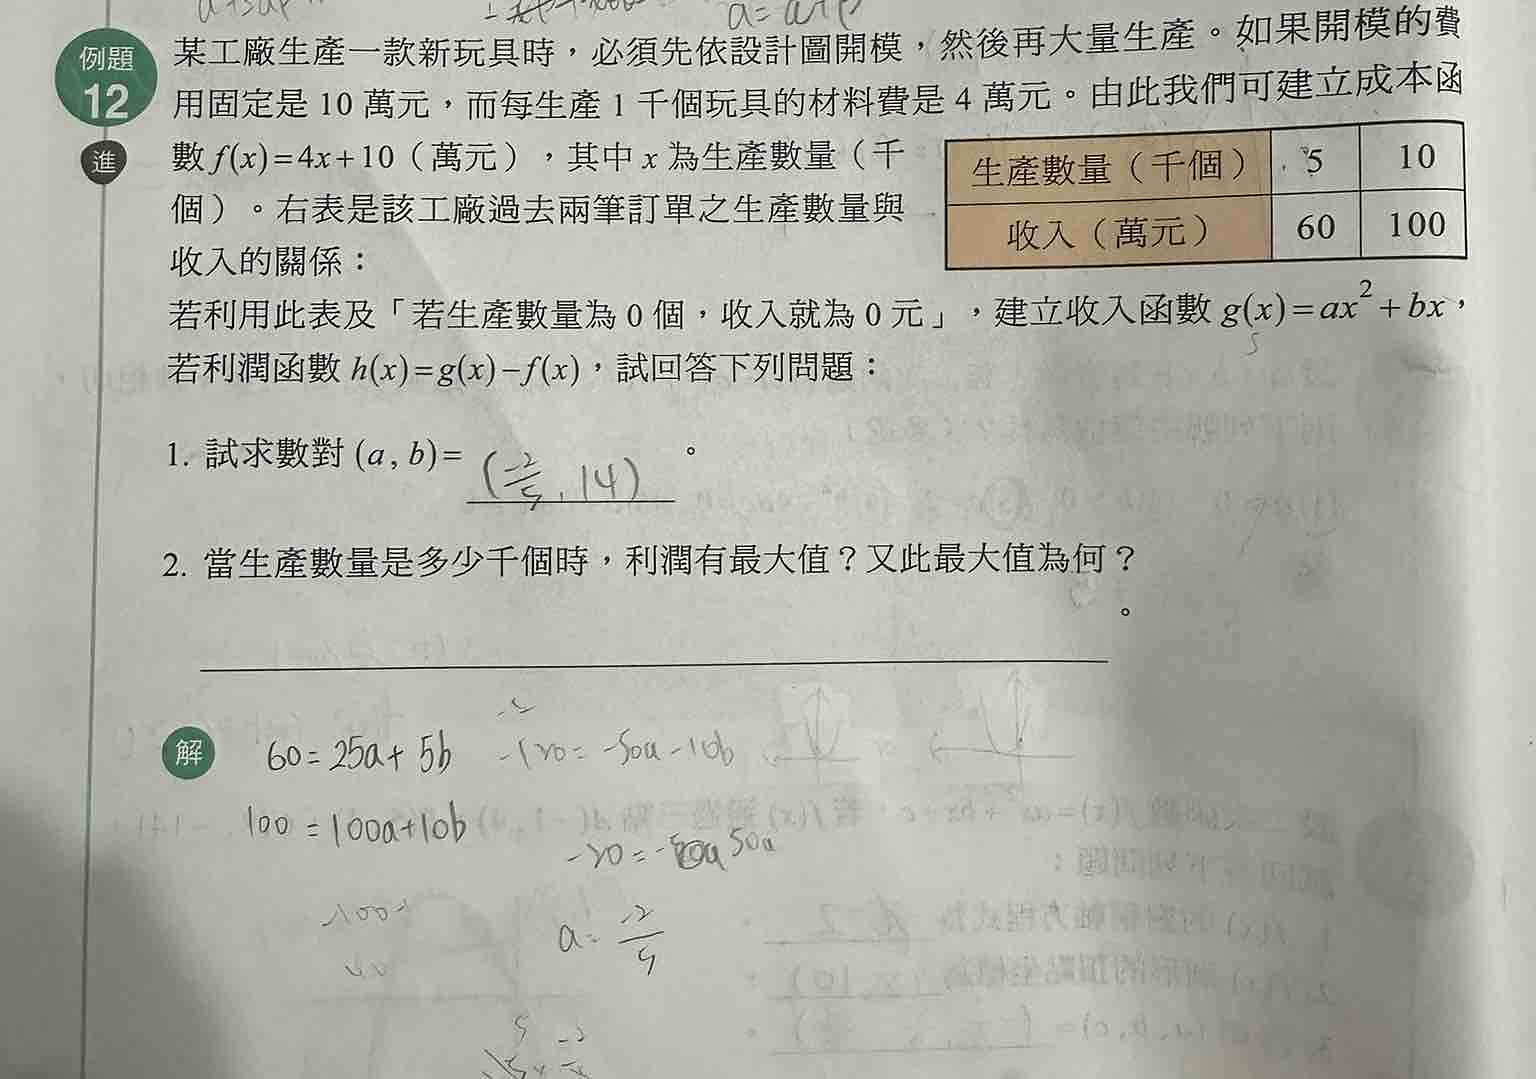 例題
12
進
某工廠生產一款新玩具時，必須先依設計圖開模，然後再大量生產。如果開模的費
用固定是 10 萬元，而每生產 1 千個玩具的材料費是 4 萬元。由此我們可建立成本函
數 f(x)=4x+10（萬元），其中 x 為生產數量（千
個）。右表是該工廠過去兩筆訂單之生產數量與
收入的關係：
生產數量（千個） 5 10
收入（萬元） 60 100
若利用此表及「若生產數量為 0 個，收入就為 0 元」，建立收入函數 g(x)=ax²+bx，
若利潤函數 h(x)=g(x)−f(x)，試回答下列問題：
1. 試求數對 (a , b)= (-2/5 , 14) 。
2. 當生產數量是多少千個時，利潤有最大值？又此最大值為何？
。
解
60=25a+5b -120=-50a-10b
100=100a+10b
-20= 50a
a= -2/5